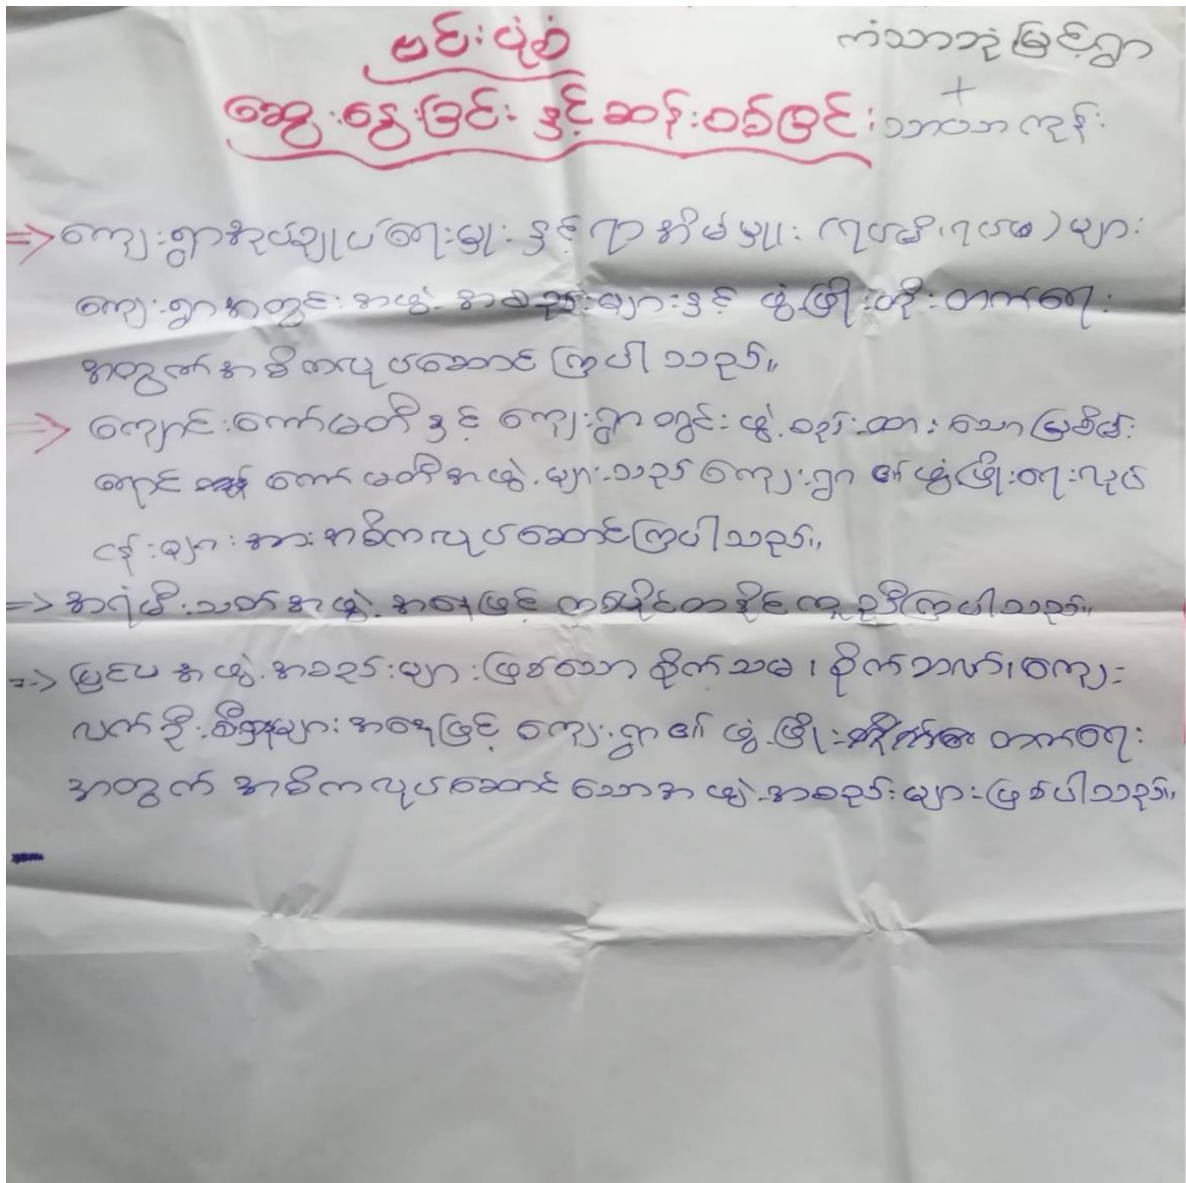 ဗင်းပုံစံ
ကံသာဘုံမြင့်ရွာ
+
ဆွေးနွေးခြင်း နှင့် ဆန်းစစ်ခြင်း
သာယာကုန်း
⇒ ကျေးရွာအုပ်ချုပ်ရေးမှူး နှင့် ရာအိမ်မှူး (ရပ်မိ၊ ရပ်ဖ) များ
ကျေးရွာအတွင်း အဖွဲ့အစည်းများနှင့် ဖွံ့ဖြိုးတိုးတက်ရေး
အတွက် အဓိကလုပ်ဆောင်ကြပါသည်။
⇒ ကျောင်းကော်မတီနှင့် ကျေးရွာတွင်း ဖွဲ့စည်းထားသော မြစိမ်း
ရောင် ကော်မတီအဖွဲ့များသည် ကျေးရွာ၏ ဖွံ့ဖြိုးရေးလုပ်
ငန်းများအား အဓိကလုပ်ဆောင်ကြပါသည်။
⇒ အရံမီးသတ်အဖွဲ့အနေဖြင့် တစ်ပိုင်တနိုင် ကူညီကြပါသည်။
⇒ ပြင်ပအဖွဲ့အစည်းများဖြစ်သော စိုက်သမ၊ စိုက်ဘဏ်၊ ကျေး
လက်ဦးစီးဌာနများအနေဖြင့် ကျေးရွာ၏ ဖွံ့ဖြိုး တက်ရေး
အတွက် အဓိကလုပ်ဆောင်သောအဖွဲ့အစည်းများဖြစ်ပါသည်။